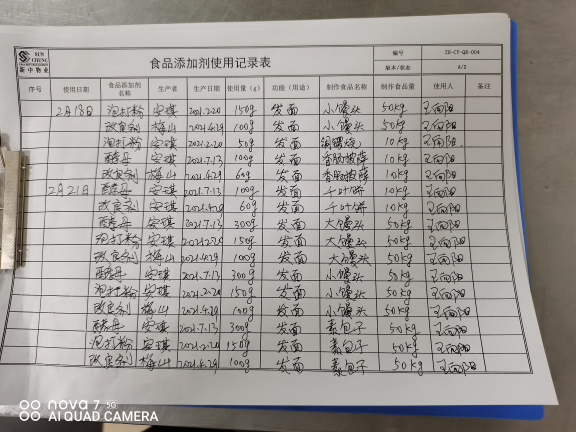 SUN CHUNG
新中物业
食品添加剂使用记录表
编号 ZH-CY-QR-004
版本/状态 A/2
序号 使用日期 食品添加剂名称 生产者 生产日期 使用量(g) 功能(用途) 制作食品名称 制作食品量 使用人 备注
2月18日 泡打粉 安琪 2021.2.20 150g 发面 小馒头 50kg 王向阳
改良剂 梅山 2021.4.29 100g 发面 小馒头 50kg 王向阳
泡打粉 安琪 2021.2.20 50g 发面 铜锣烧 10kg 王向阳
酵母 安琪 2021.7.13 100g 发面 香肠披萨 10kg 王向阳
改良剂 梅山 2021.4.29 60g 发面 香肠披萨 10kg 王向阳
2月21日 酵母 安琪 2021.7.13 100g 发面 千叶饼 10kg 王向阳
改良剂 安琪 2021.4.29 60g 发面 千叶饼 10kg 王向阳
酵母 安琪 2021.7.13 300g 发面 大馒头 50kg 王向阳
泡打粉 安琪 2021.2.20 150g 发面 大馒头 50kg 王向阳
改良剂 梅山 2021.4.29 100g 发面 大馒头 50kg 王向阳
酵母 安琪 2021.7.13 300g 发面 小馒头 50kg 王向阳
泡打粉 安琪 2021.2.20 150g 发面 小馒头 50kg 王向阳
改良剂 安琪 2021.4.29 100g 发面 小馒头 50kg 王向阳
酵母 安琪 2021.7.13 300g 发面 素包子 50kg 王向阳
泡打粉 安琪 2021.2.20 150g 发面 素包子 50kg 王向阳
改良剂 梅山 2021.4.29 100g 发面 素包子 50kg 王向阳
nova 7 5G
AI QUAD CAMERA